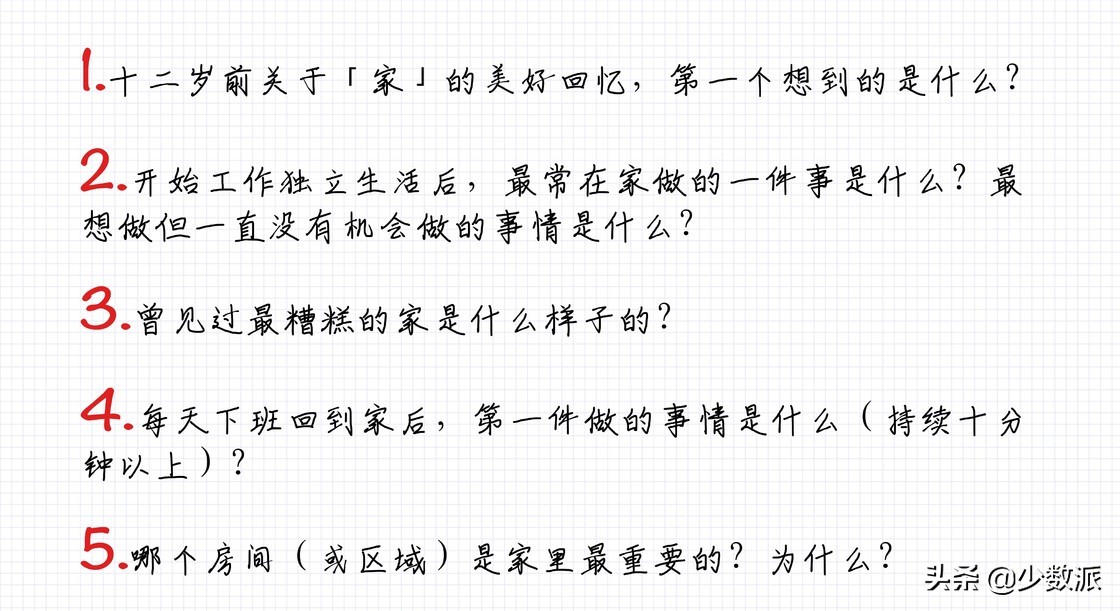 1.十二岁前关于「家」的美好回忆，第一个想到的是什么？
2.开始工作独立生活后，最常在家做的一件事是什么？最
想做但一直没有机会做的事情是什么？
3.曾见过最糟糕的家是什么样子的？
4.每天下班回到家后，第一件做的事情是什么（持续十分
钟以上）？
5.哪个房间（或区域）是家里最重要的？为什么？
头条 @少数派